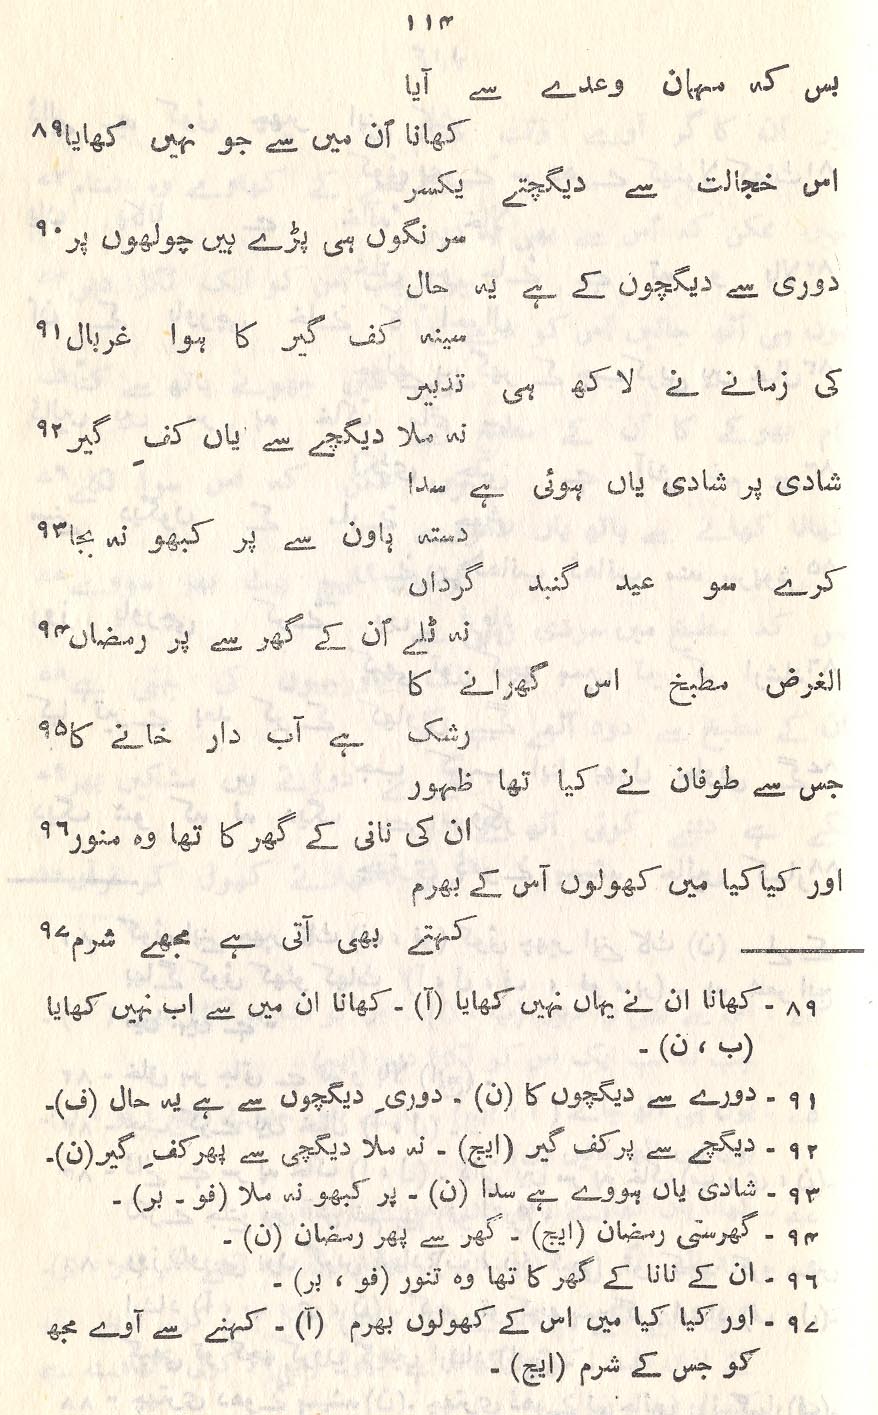 ۱۱۴
بس کہ مہمان وعدے سے آیا
کھانا اُن میں سے جو نہیں کھایا ۸۹
اس خجالت سے دیگچتے یکسر
سر نگوں ہی پڑے ہیں چولھوں پر ۹۰
دوری سے دیگچوں کے ہے یہ حال
سینہ کف گیر کا ہوا غربال ۹۱
کی زمانے نے لاکھ ہی تدبیر
نہ ملا دیگچے سے یاں کفِ گیر ۹۲
شادی پر شادی یاں ہوئی ہے سدا
دستہ ہاون سے پر کبھو نہ بجا ۹۳
کرے سو عید گنبد گرداں
نہ ٹلے اُن کے گھر سے پر رمضاں ۹۴
الغرض مطبخ اس گھرانے کا
رشک ہے آب دار خانے کا ۹۵
جس سے طوفان نے کیا تھا ظہور
ان کی نانی کے گھر کا تھا وہ منور ۹۶
اور کیا کیا میں کھولوں اُس کے بھرم
کہتے بھی آتی ہے مجھے شرم ۹۷
۸۹ ۔ کھانا ان نے یہاں نہیں کھایا (آ) ۔ کھانا ان میں سے اب نہیں کھایا
(ب ، ن) ۔
۹۱ ۔ دورے سے دیگچوں کا (ن) ۔ دوریِ دیگچوں سے ہے یہ حال (ف)۔
۹۲ ۔ دیگچے سے پر کف گیر (ایچ) ۔ نہ ملا دیگچی سے پھر کفِ گیر (ن)۔
۹۳ ۔ شادی یاں ہووے ہے سدا (ن) ۔ پر کبھو نہ ملا (فو ۔ بر) ۔
۹۴ ۔ گھرستی رمضان (ایچ) ۔ گھر سے پھر رمضان (ن) ۔
۹۶ ۔ ان کے نانا کے گھر کا تھا وہ تنور (فو ، بر) ۔
۹۷ ۔ اور کیا کیا میں اس کے کھولوں بھرم (آ) ۔ کہنے سے آوے مجھ
کو جس کے شرم (ایچ) ۔